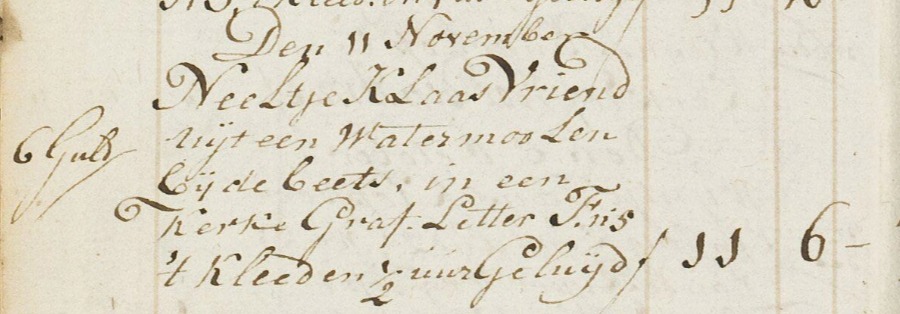 Den 11 November
Neeltje KLaas Vriend
uijt een WatermooLen
6 Guld
bij de beets, in een
Kerke Graf. Letter F: n: 5
't Kleed en ½ uur Geluijd / 11 6 -